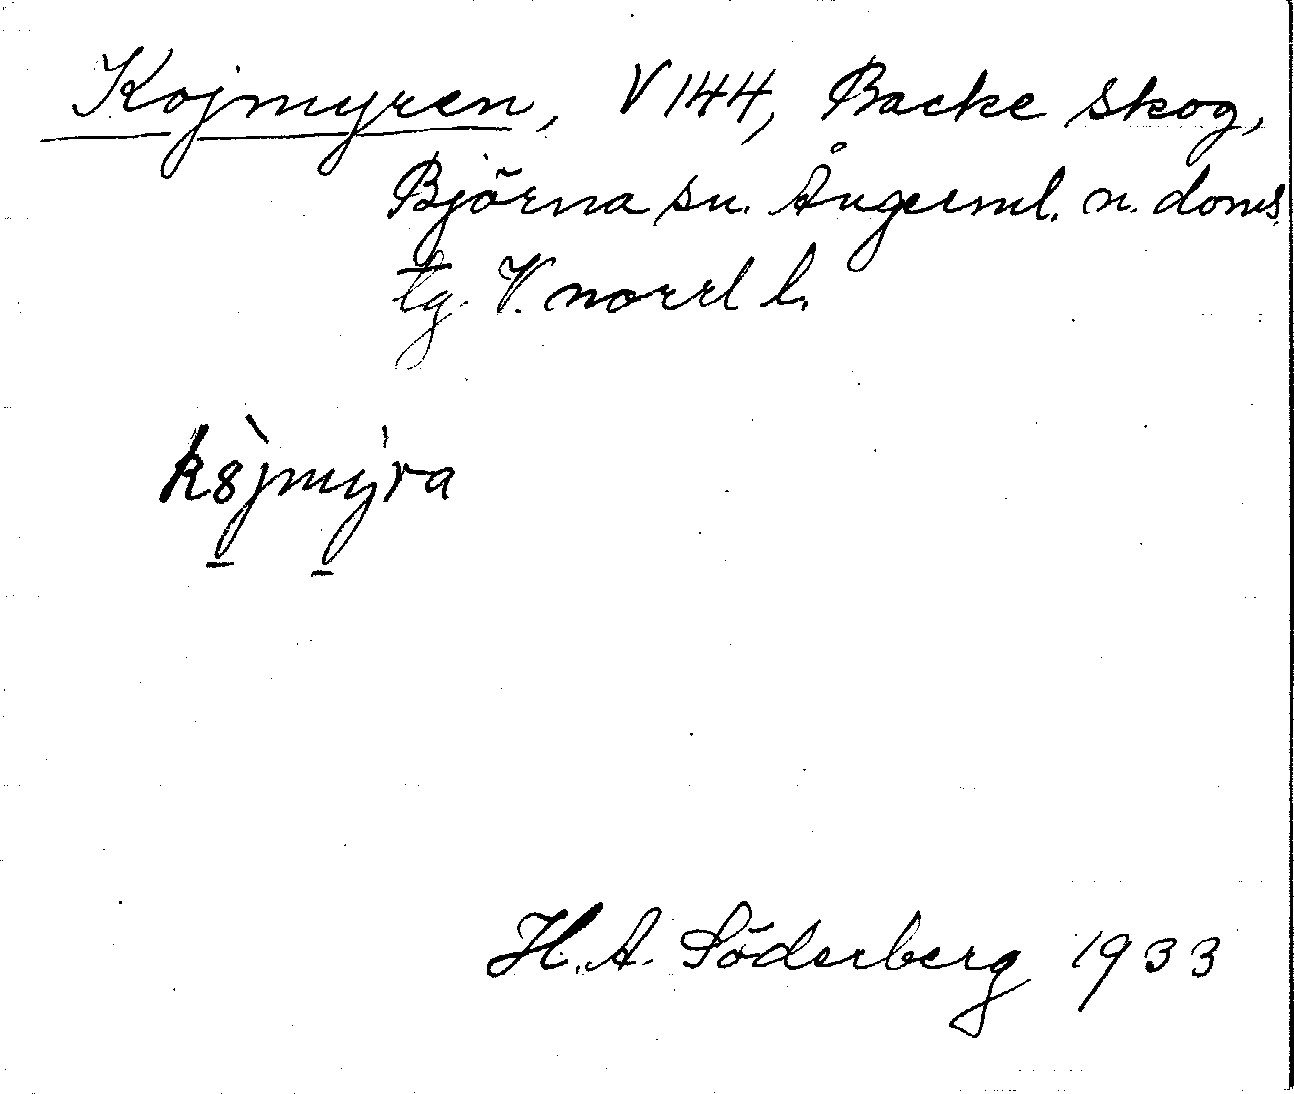 Kojmyren, V 144, Backe skog,
Björna sn. Ångerml. n. doms
tg. V. norrl l.
kȣ̀jmy̍ra
H. A. Söderberg 1933